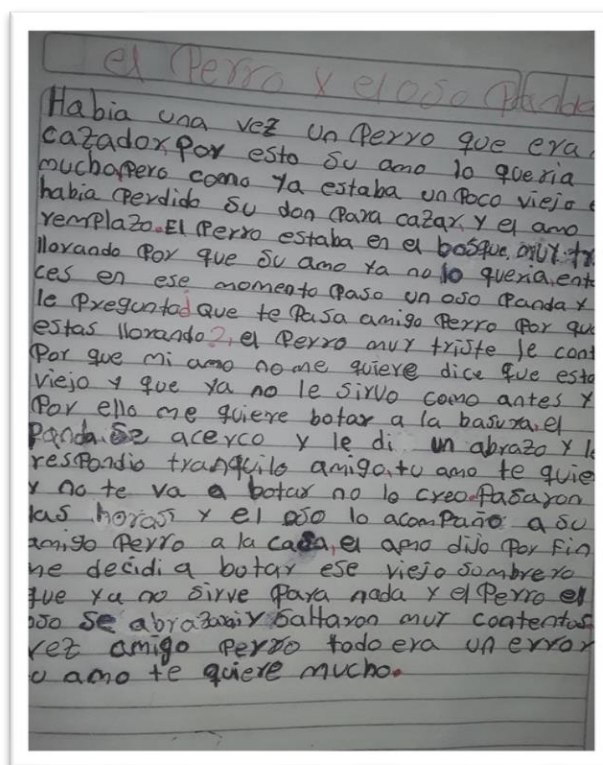 el Perro y el oso Panda
Habia una vez un Perro que era
cazador, Por esto su amo lo queria
mucha, Pero como ya estaba un Poco viejo
habia Perdido su don Para cazar, y el amo
remplazo. El Perro estaba en el bosque, muy tr
llorando Por que su amo ya no lo queria, ent
ces en ese momento Paso un oso Panda y
le Pregunta ¿Que te Pasa amigo Perro Por qu
estas llorando?, el Perro muy triste le cont
Por que mi amo no me quiere dice que esto
viejo y que ya no le sirvo como antes y
Por ello me quiere botar a la basura, el
Panda se acerco y le di un abrazo y l
respondio tranquilo amigo, tu amo te quie
y no te va a botar no lo creo. Pasaron
las horas y el oso lo acompaño a su
amigo Perro a la casa, el amo dijo Por fin
me decidi a botar ese viejo sombrero
que ya no sirve Para nada y el Perro el
oso se abrazaron y saltaron muy contentos
vez amigo Perro todo era un error
u amo te quiere mucho.